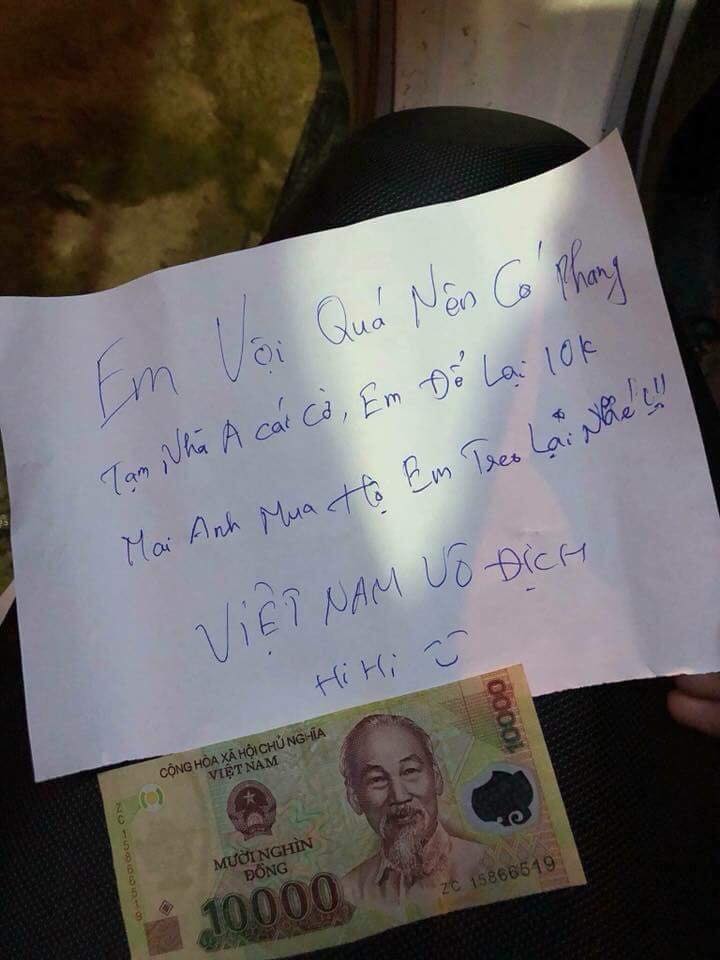 Em Vội Quá Nên Có Phang
Tạm Nhà A cái Cờ, Em Để Lại 10k
Mai Anh Mua Hộ Em Treo Lại Nhé!!
VIỆT NAM VÔ ĐỊCH
Hi Hi
CỘNG HÒA XÃ HỘI CHỦ NGHĨA
VIỆT NAM
10000
ZC 15866519
MƯỜI NGHÌN
ĐỒNG
10000
ZC 15866519